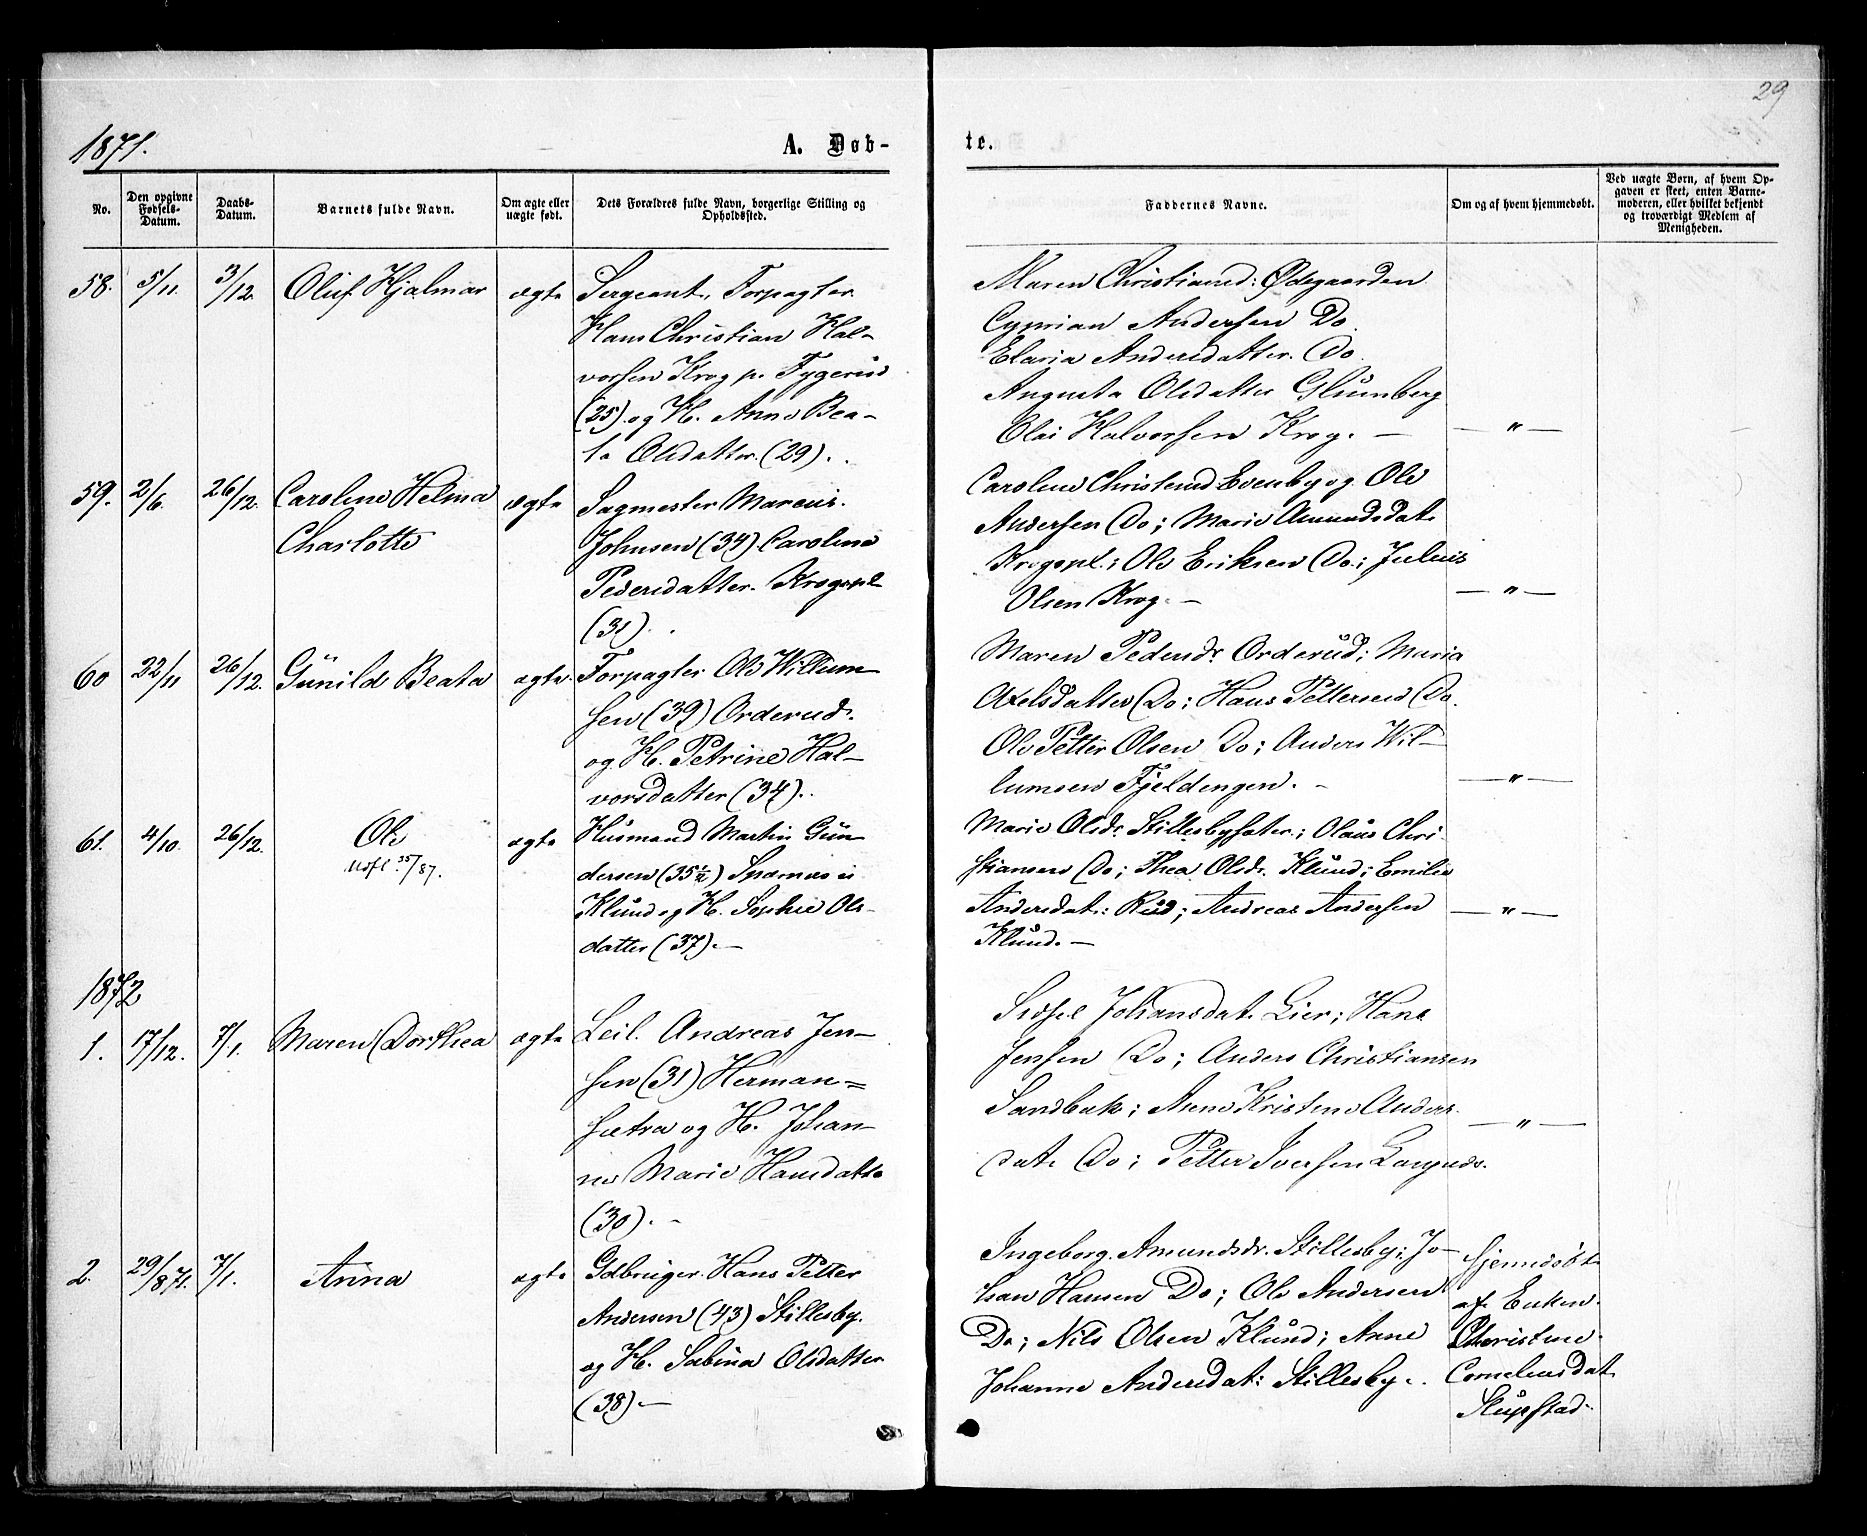 29
1871.
A. Døb-
te.
No.
Den opgivne Fødsels-Datum.
Daabs-Datum.
Barnets fulde Navn.
Om ægte eller uægte født.
Dets Forældres fulde Navn, borgerlige Stilling og Opholdssted.
Faddernes Navne.
Om og af hvem hjemmedøbt.
Ved uægte Børn, af hvem Opgaven er skeet, enten Barnemoderen, eller hvilket bekjendt og troværdigt Medlem af Menigheden.
58. 5/11. 3/12. Oluf Hjalmar ægte Sergeant, Forpagter
Hans Christian Hal-
vorsen Krog p. Tygerud
(25) og H. Anne Bea-
te Olsdatter. (29).
Maren Christiansd: Ødegaarden
Cyprian Andersen Do.
Elaria Andersdatter. Do.
Augusta Olsdatter Glumberg
Olai Halvorsen Krog. — — " —
59. 2/6. 26/12. Caroline Helma ægte Sagmester Marcus
Charlotte Johnsen (34) Caroline
Pedersdatter. Krogspl.
(31).
Caroline Christensd Evenby og Ole
Andersen Do; Marie Amundsdat.
Krogspl.; Ole Eriksen Do; Julius
Olsen Krog. — — " —
60 22/11 26/12. Gunild Beata ægte. Forpagter Ole Willum-
sen (39) Orderud.
og H. Petrine Hal-
vorsdatter (34).
Maren Pedersdr. Orderud; Maria
Axelsdatter Do; Hans Pettersen Do.
Ole Petter Olsen Do; Anders Wil-
lumsen Fjeldengen. — — " —
61. 4/10. 26/12. Ole ægte Husmand Martin Gun
Udfl /87. dersen (35½) Snarnæs ei
Klund og H. Sophie Ols-
datter (37). —
Marie Olsdr. Stillesbysæter.; Olaus Chri-
stiansen Do; Thea Olsdr. Klund; Emilie
Andersdat: Rud; Andreas Andersen — " —
Klund. —
1872
1. 17/12. 7/1. Maren Dorthea ægte Leil. Andreas Jen-
sen (31) Herman=
sætra og H. Johan-
ne Marie Hansdatte
(30). —
Sidsel Johansdat. Lier; Hans
Jensen Do; Anders Christiansen
Sandbæk; Anne Kristine Anders-
dat. Do; Petter Iversen — " —
2. 29/8 71. 7/1. Anna ægte Gdbruger. Hans Petter
Andersen (43) Stillesby.
og H. Sabina Olsdatter
(38). —
Ingeborg Amundsdr. Stillesby; Jo-
han Hansen Do; Ole Andersen
Do; Nils Olsen Klund; Anne
Johanne Andersdat: Stillesby.
hjemmedøbt
af Enken
Christine
Corneliusdat
Slupstad.